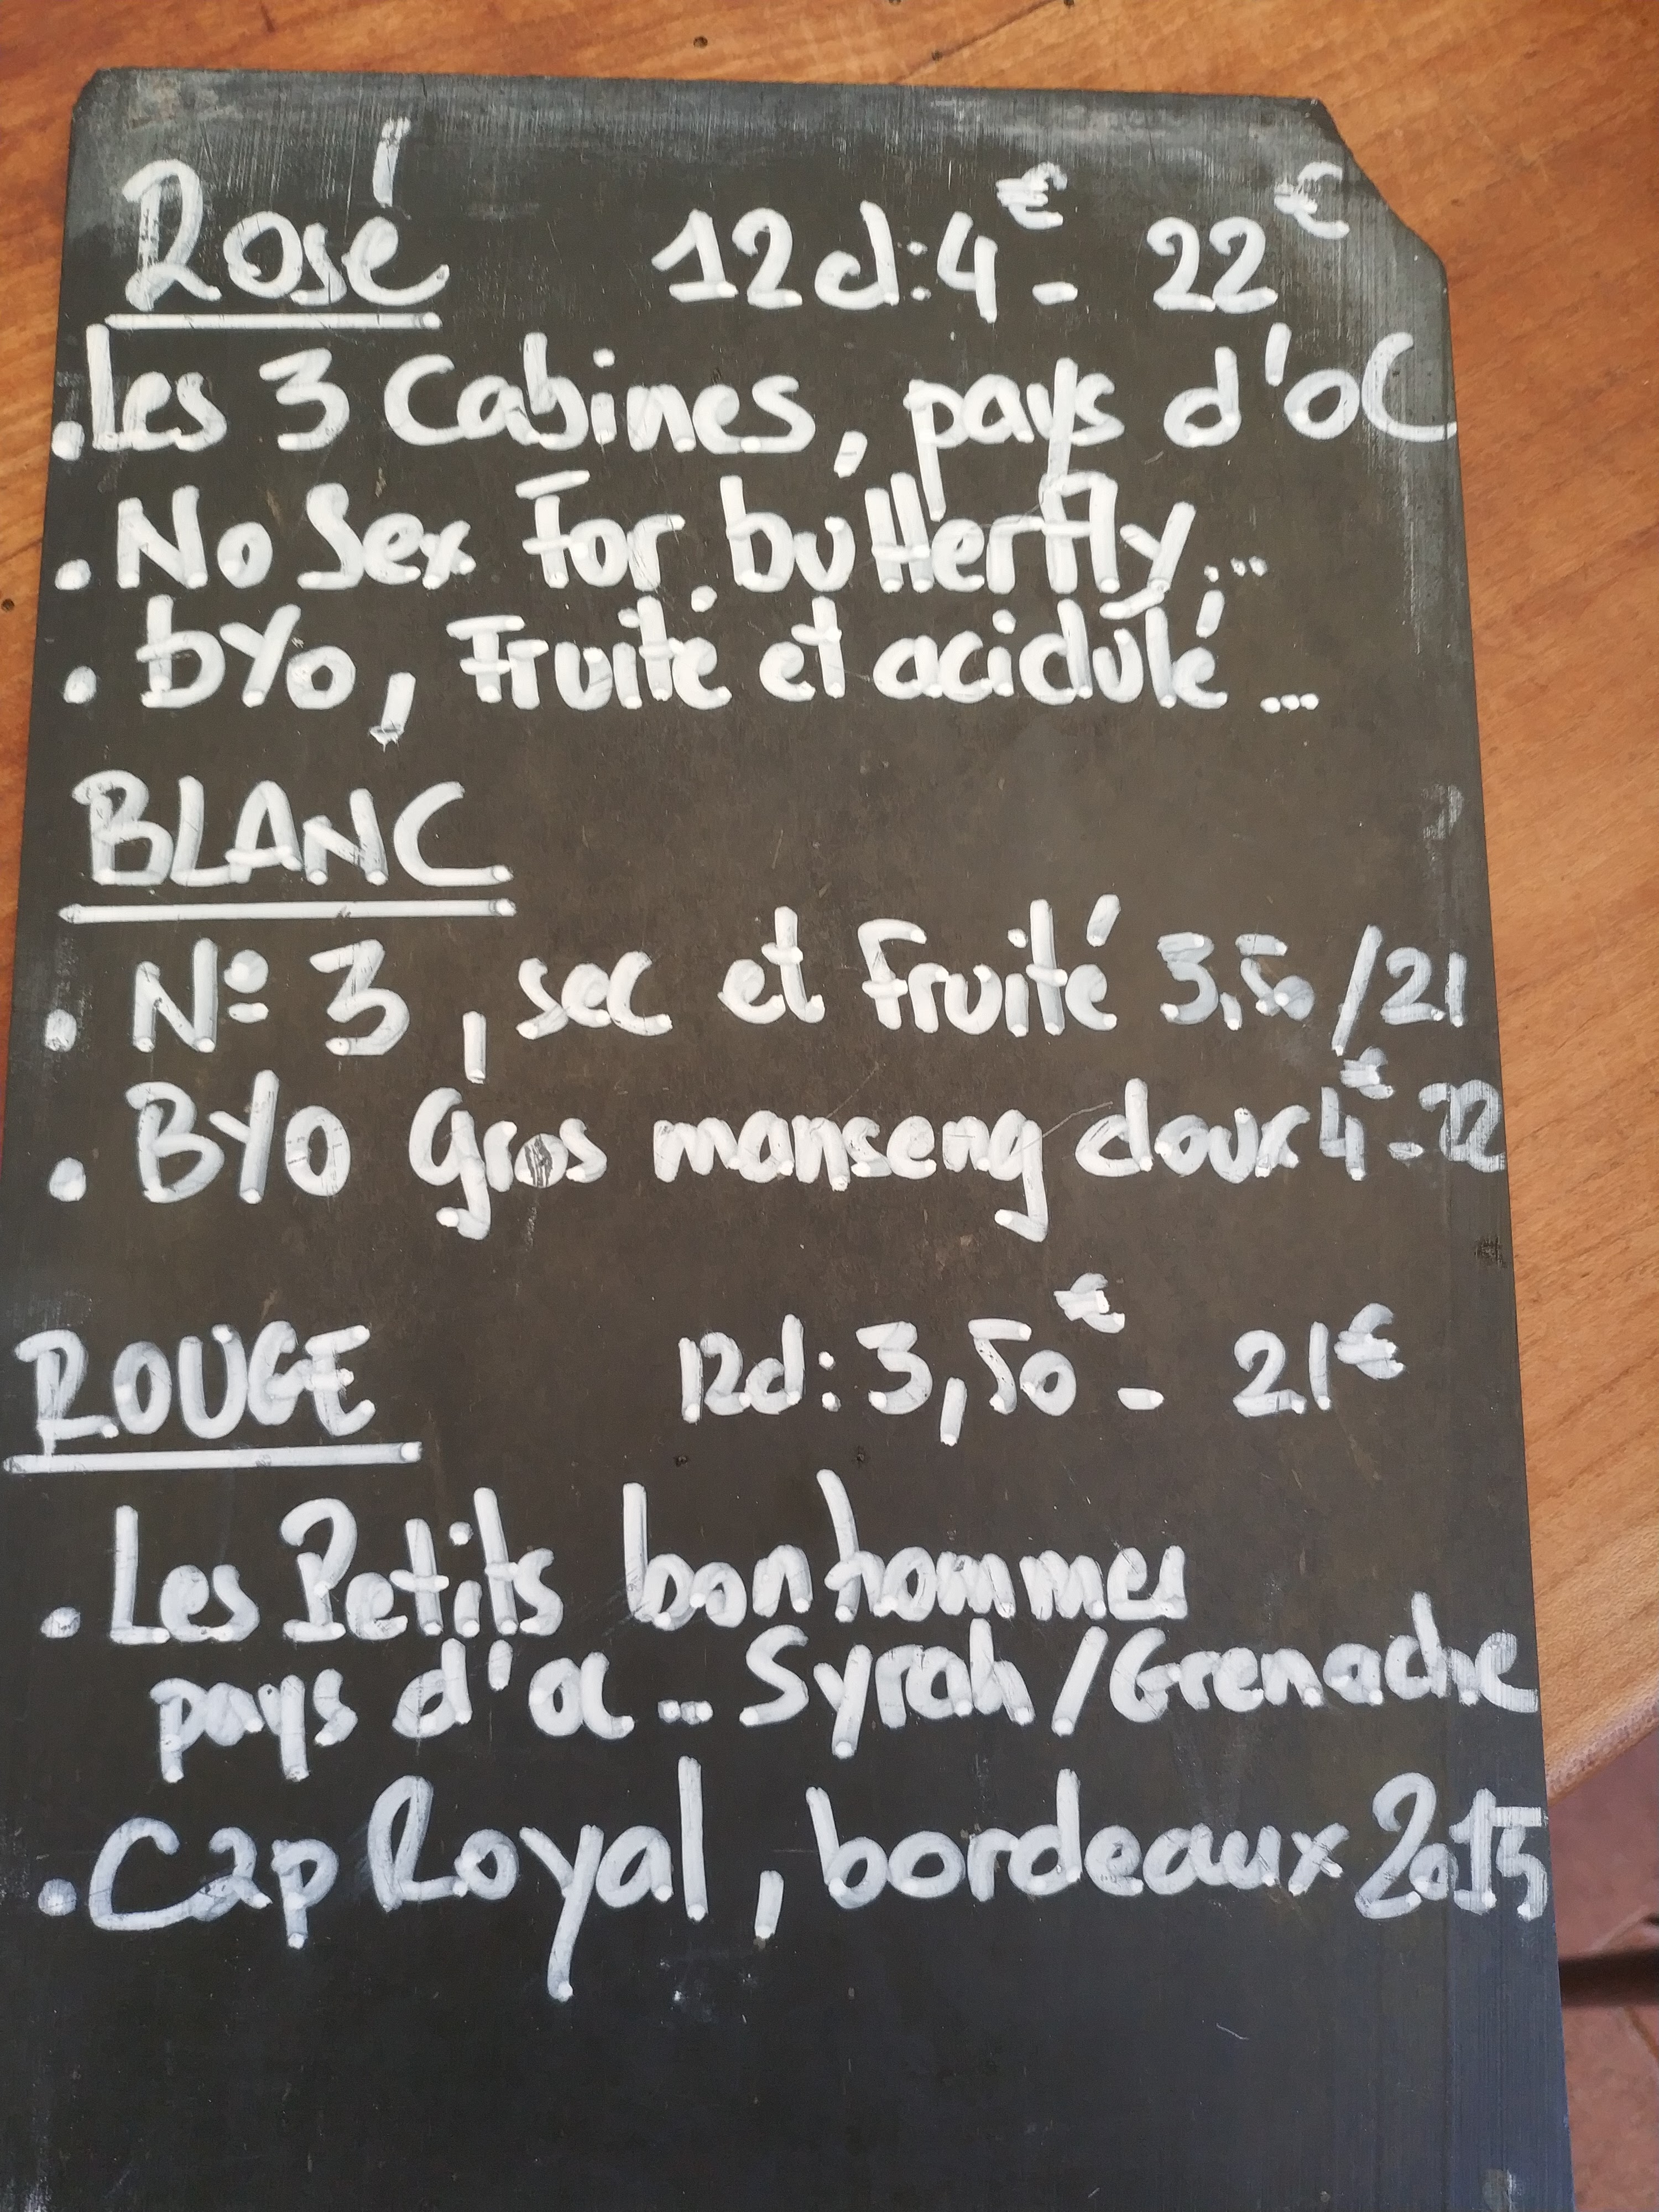 Rosé 12cl:4€ - 22€
.Les 3 Cabines, pays d'oc
. No Sex For butterfly...
. bYo, Fruité et acidulé ...
BLANC
. Nº 3, sec et Fruité 3,50/21
. BYO Gros manseng doux 4€-22
ROUGE 12cl: 3,50€ - 21€
. Les Petits bonhommes
pays d'oc ... Syrah/Grenache
. Cap Royal, bordeaux 2015